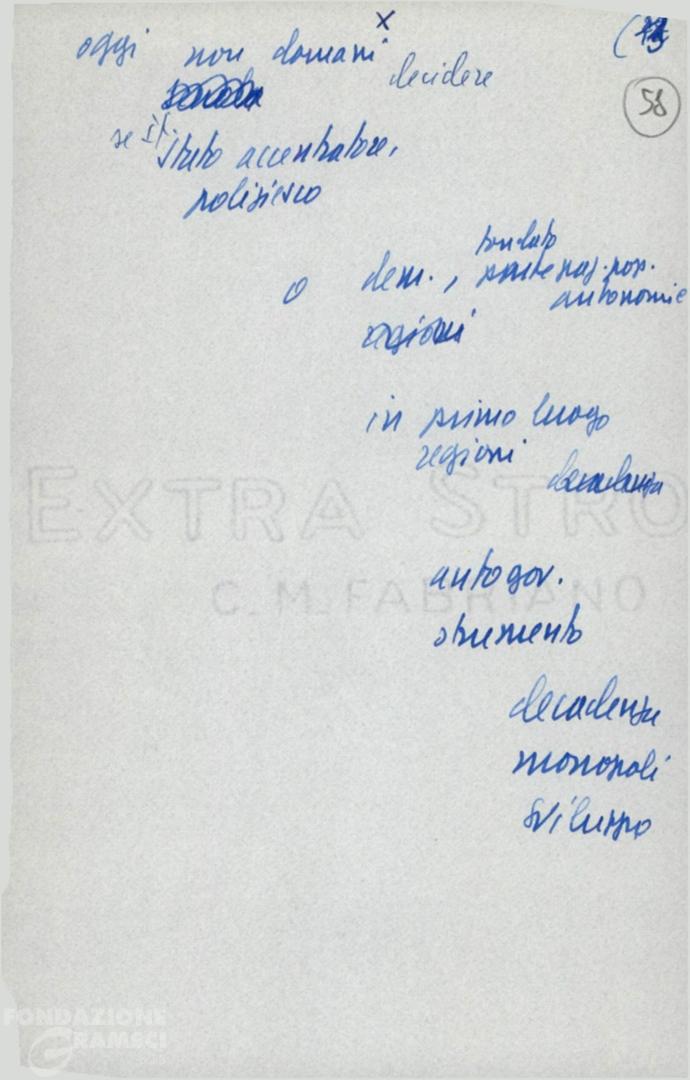 x
oggi non domani
decidere
58
se it.
Stato accentratore,
poliziesco
fondato
o dem., naz. pop.
autonomie
regioni
in primo luogo
regioni
decadenza
EXTRA STRO
C. M. FABRIANO
autogov.
strumento
decadenza
monopoli
sviluppo
FONDAZIONE
GRAMSCI